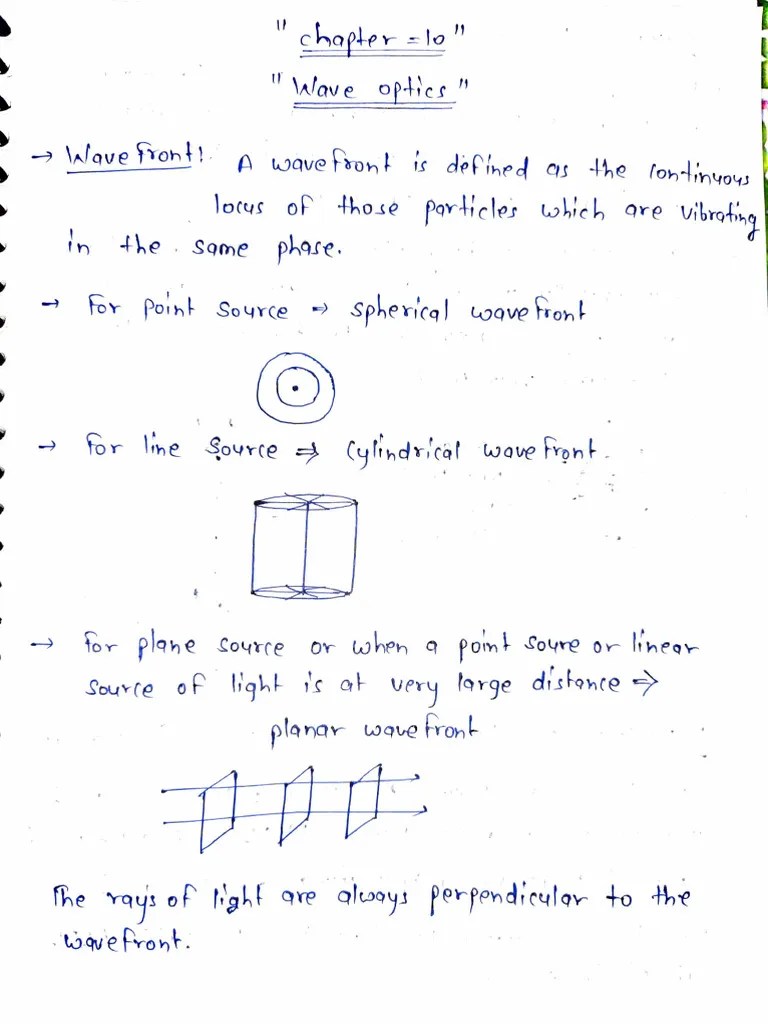 " chapter = 10 "
" Wave optics "
→ Wavefront:. A wavefront is defined as the continuous
locus of those particles which are vibrating
in the same phase.
→ For point source ⇒ spherical wavefront
→ for line source ⇒ cylindrical wavefront.
→ for plane source or when a point soure or linear
source of light is at very large distance ⇒
planar wavefront
The rays of light are always perpendicular to the
wavefront.